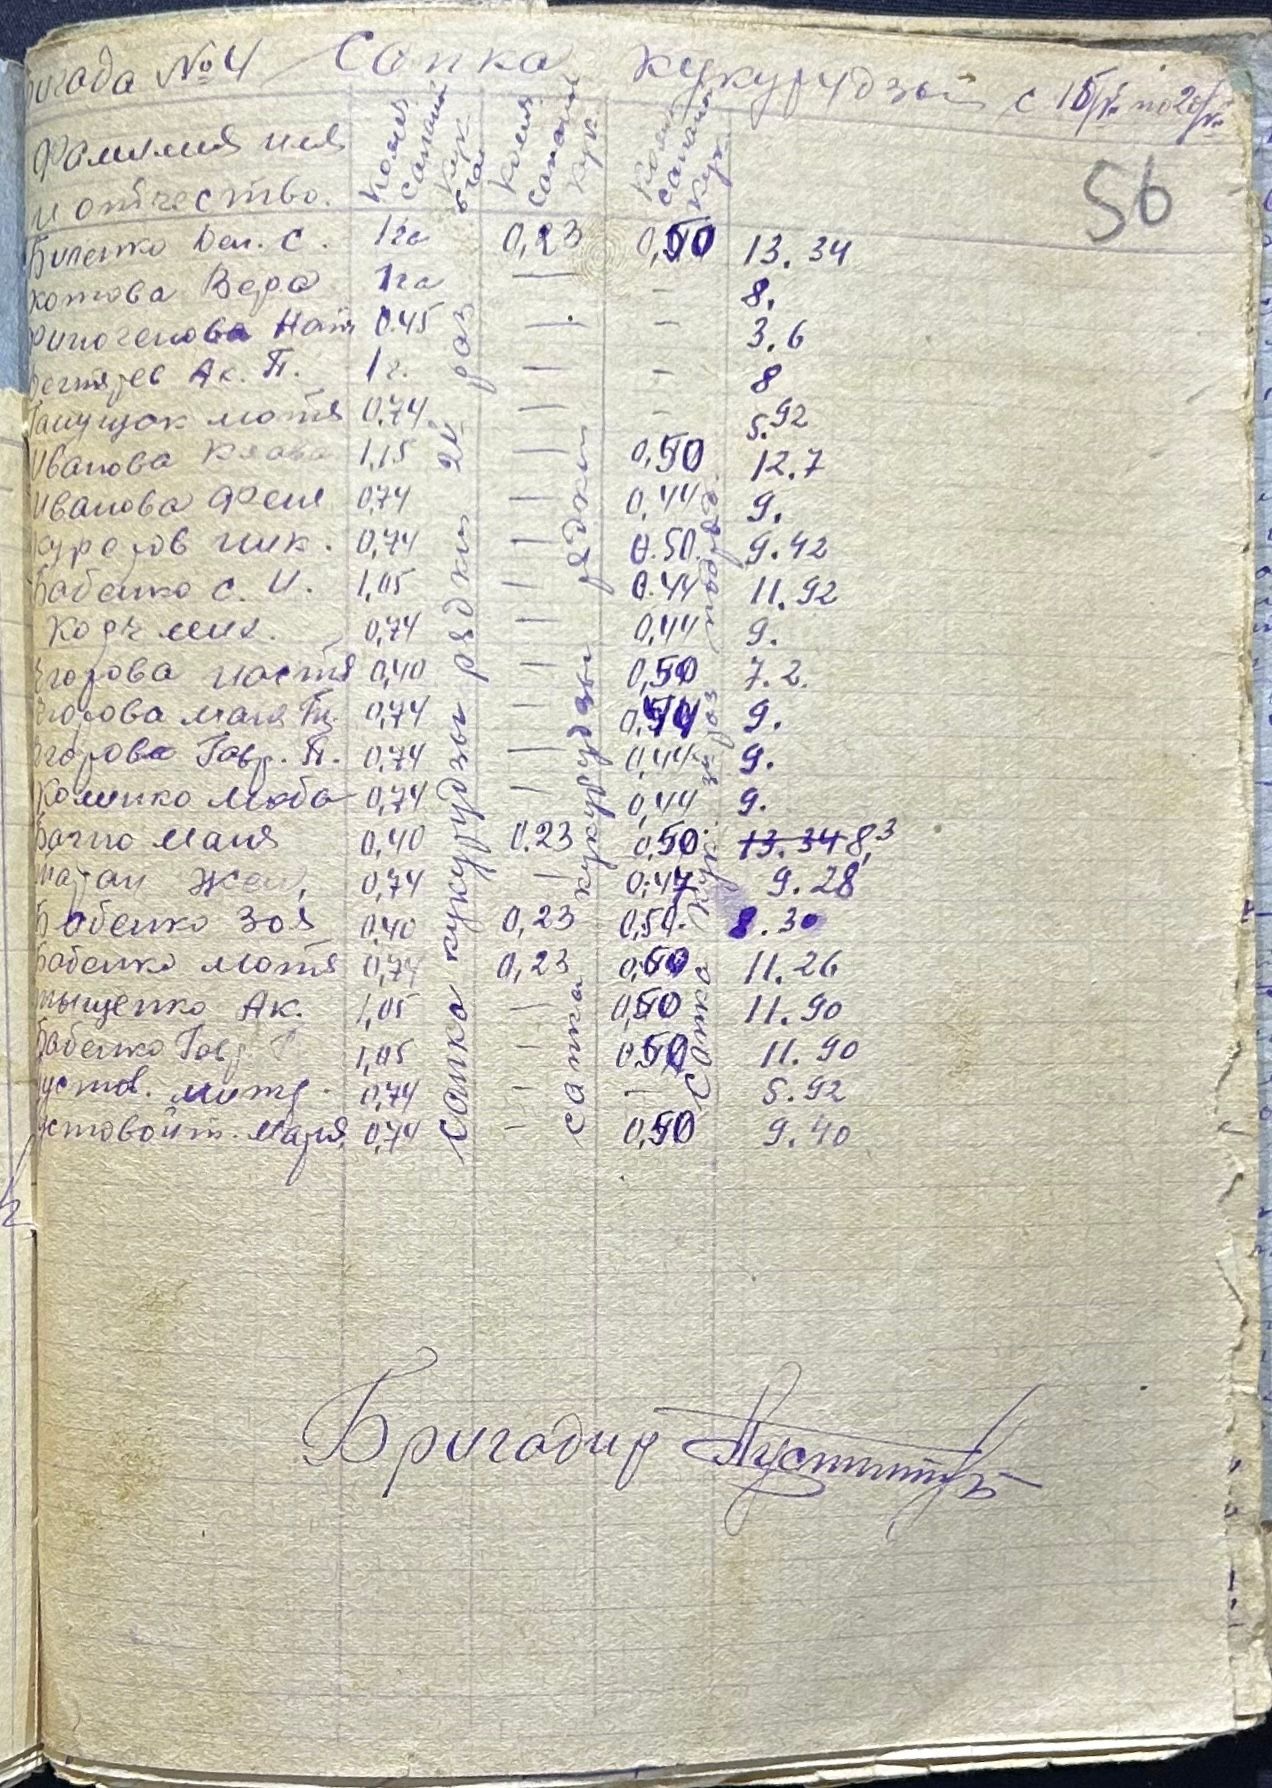 Бригада №4 Сапка кукурудзы с 15/V по 20/V
56
Фамилия имя и отчество. Колич сапаной кук в га Колич сапаной кук. Колич сапаной кук
Биленко Дем. С. 1га 0,23 0,50 13.34
Котова Вера 1га — - 8.
Нат 0.45 — - 3.6
Ак. П. 1г. — - 8
мотя 0,74 — - 5.92
Иванова Клава 1,15 — 0,50 12.7
Иванова Феня 0,74 — 0,44 9.
ник. 0,74 — 0.50. 9.42
Бабенко С. И. 1,05 — 0.44 11.92
Корч мих. 0,74 — 0,44 9.
Егорова настя 0,40 — 0,50 7.2.
Егорова маня 0,74 — 0,44 9.
Егорова Гавр. П. 0,74 — 0,44 9.
люба 0,74 — 0,44 9.
Маня 0,40 0.23 0,50 13.34 8,3
Жен, 0,74 — 0,47 9.28
Бабенко Зоя 0,40 0,23 0,50. 8.30
Бабенко мотя 0,74 0,23 0,50 11.26
Ак. 1,05 — 0,50 11.90
Бабенко Гавр 1,05 — 0,50 11.90
0,74 - — 5.92
Мария 0,74 - 0,50 9.40
Сапка кукурудзы рядки 2й раз
сапка кукурудзы рядки
Сапка кук. 3й раз
Бригадир